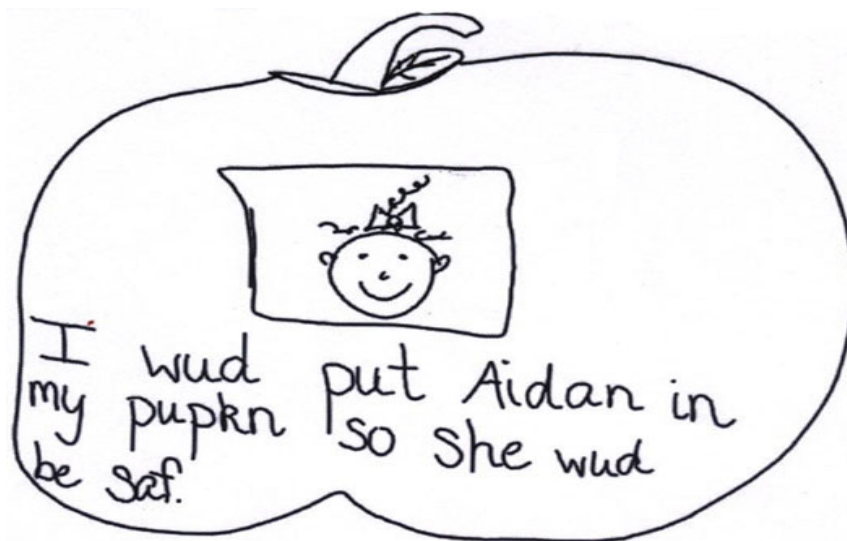 I wud put Aidan in
my pupkn so she wud
be saf.